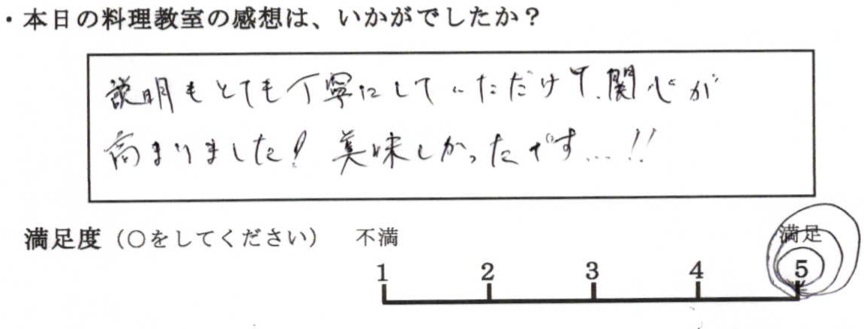 ・本日の料理教室の感想は、いかがでしたか？
説明もとても丁寧にしていただけて、関心が
高まりました！美味しかったです…!!
満足度（○をしてください） 不満 満足
1 2 3 4 5